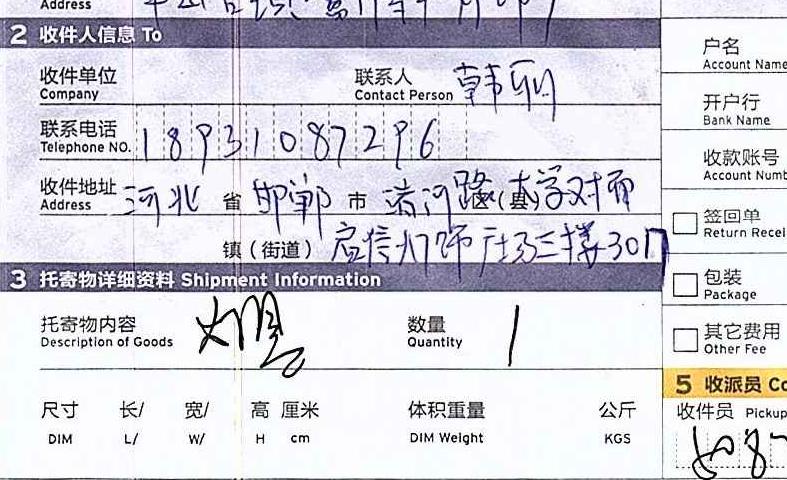 Address
2 收件人信息 To
收件单位 Company 联系人 Contact Person 韩
联系电话 Telephone NO. 18931087296
收件地址 Address 河北 省 邯郸 市 渚河路 区(县) 大学对面
镇(街道) 广信灯饰广场三楼301
3 托寄物详细资料 Shipment Information
托寄物内容 Description of Goods 数量 Quantity 1
尺寸 DIM 长/ L/ 宽/ W/ 高 H 厘米 cm 体积重量 DIM Weight 公斤 KGS
户名 Account Name
开户行 Bank Name
收款账号 Account Numb
签回单 Return Recei
包装 Package
其它费用 Other Fee
5 收派员 Co
收件员 Pickup